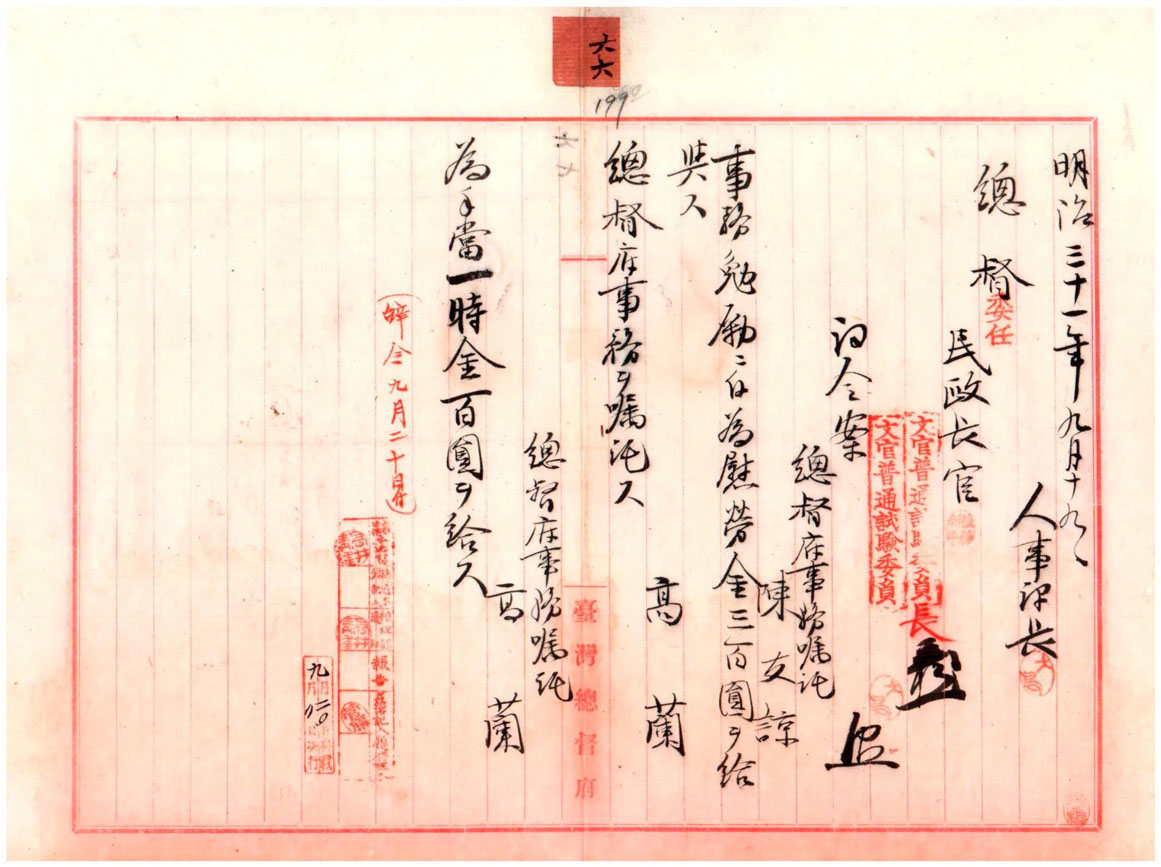 六六
1992
六七
明治三十一年九月十九日
人事課長
總督
委任
民政長官
文官普通試驗委員長
文官普通試驗委員
辞令案
總督府事務嘱託
陳友諒
事務勉励ニ付為慰勞金三百圓ヲ給
與ス
高蘭
總督府事務ヲ嘱託ス
總督府事務嘱託
高蘭
為手當一時金百圓ヲ給ス
辞令九月二十日付
報告
九月
臺灣總督府